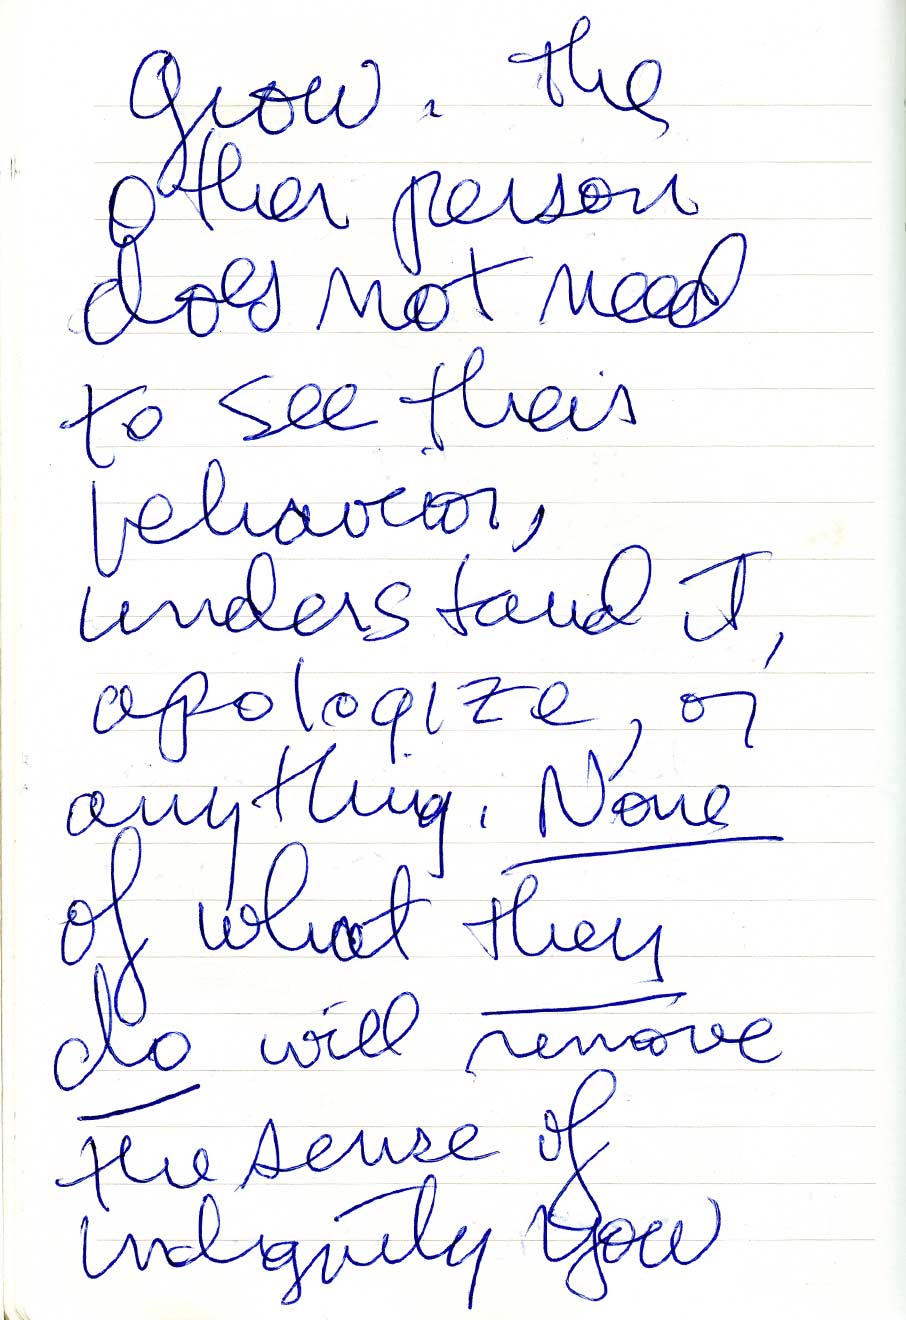 grow. The
other person
does not need
to see their
behavior,
understand it,
apologize, or
anything. None
of what they
do will remove
the sense of
indignity you